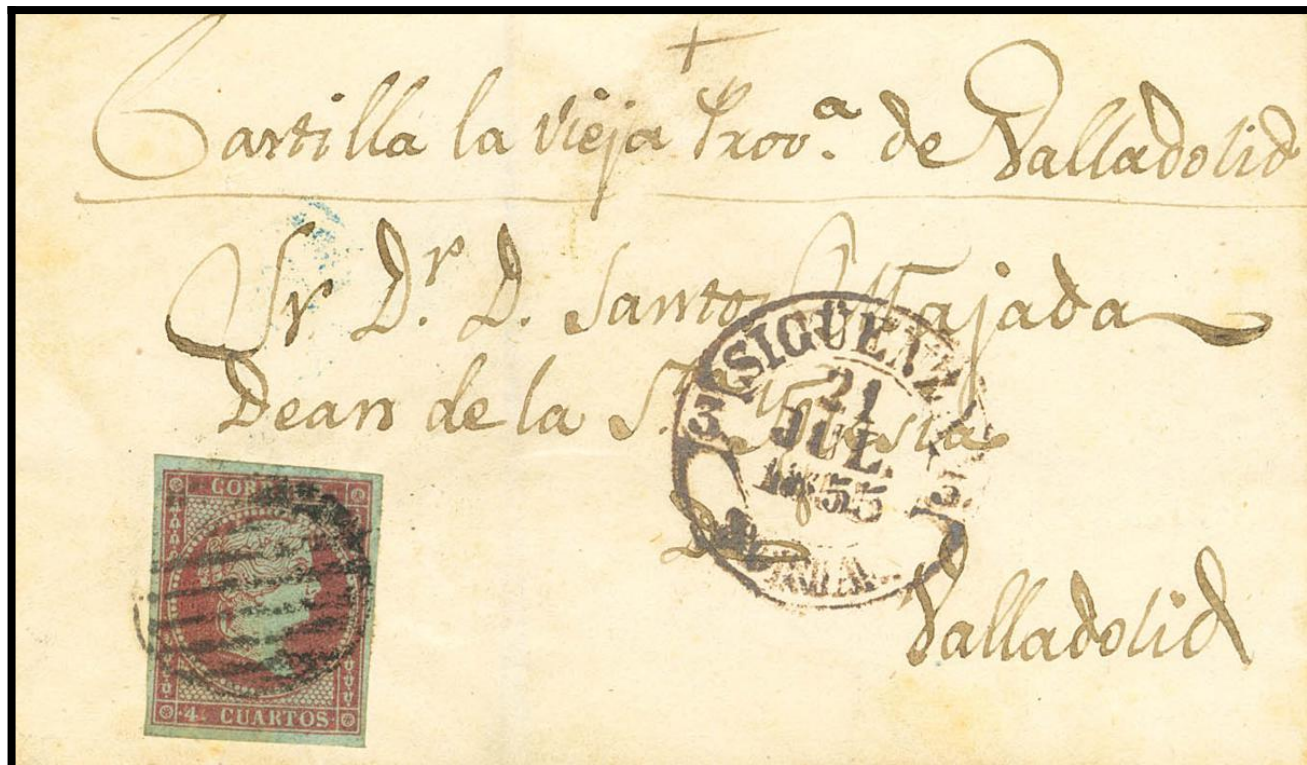 Castilla la vieja Prov.ª de Valladolid
Sr. D.r D. Santos Majada
Dean de la S.ta Iglesia
de
Valladolid
SIGUENZA
21
JUL.
1855
CORREOS
4. CUARTOS